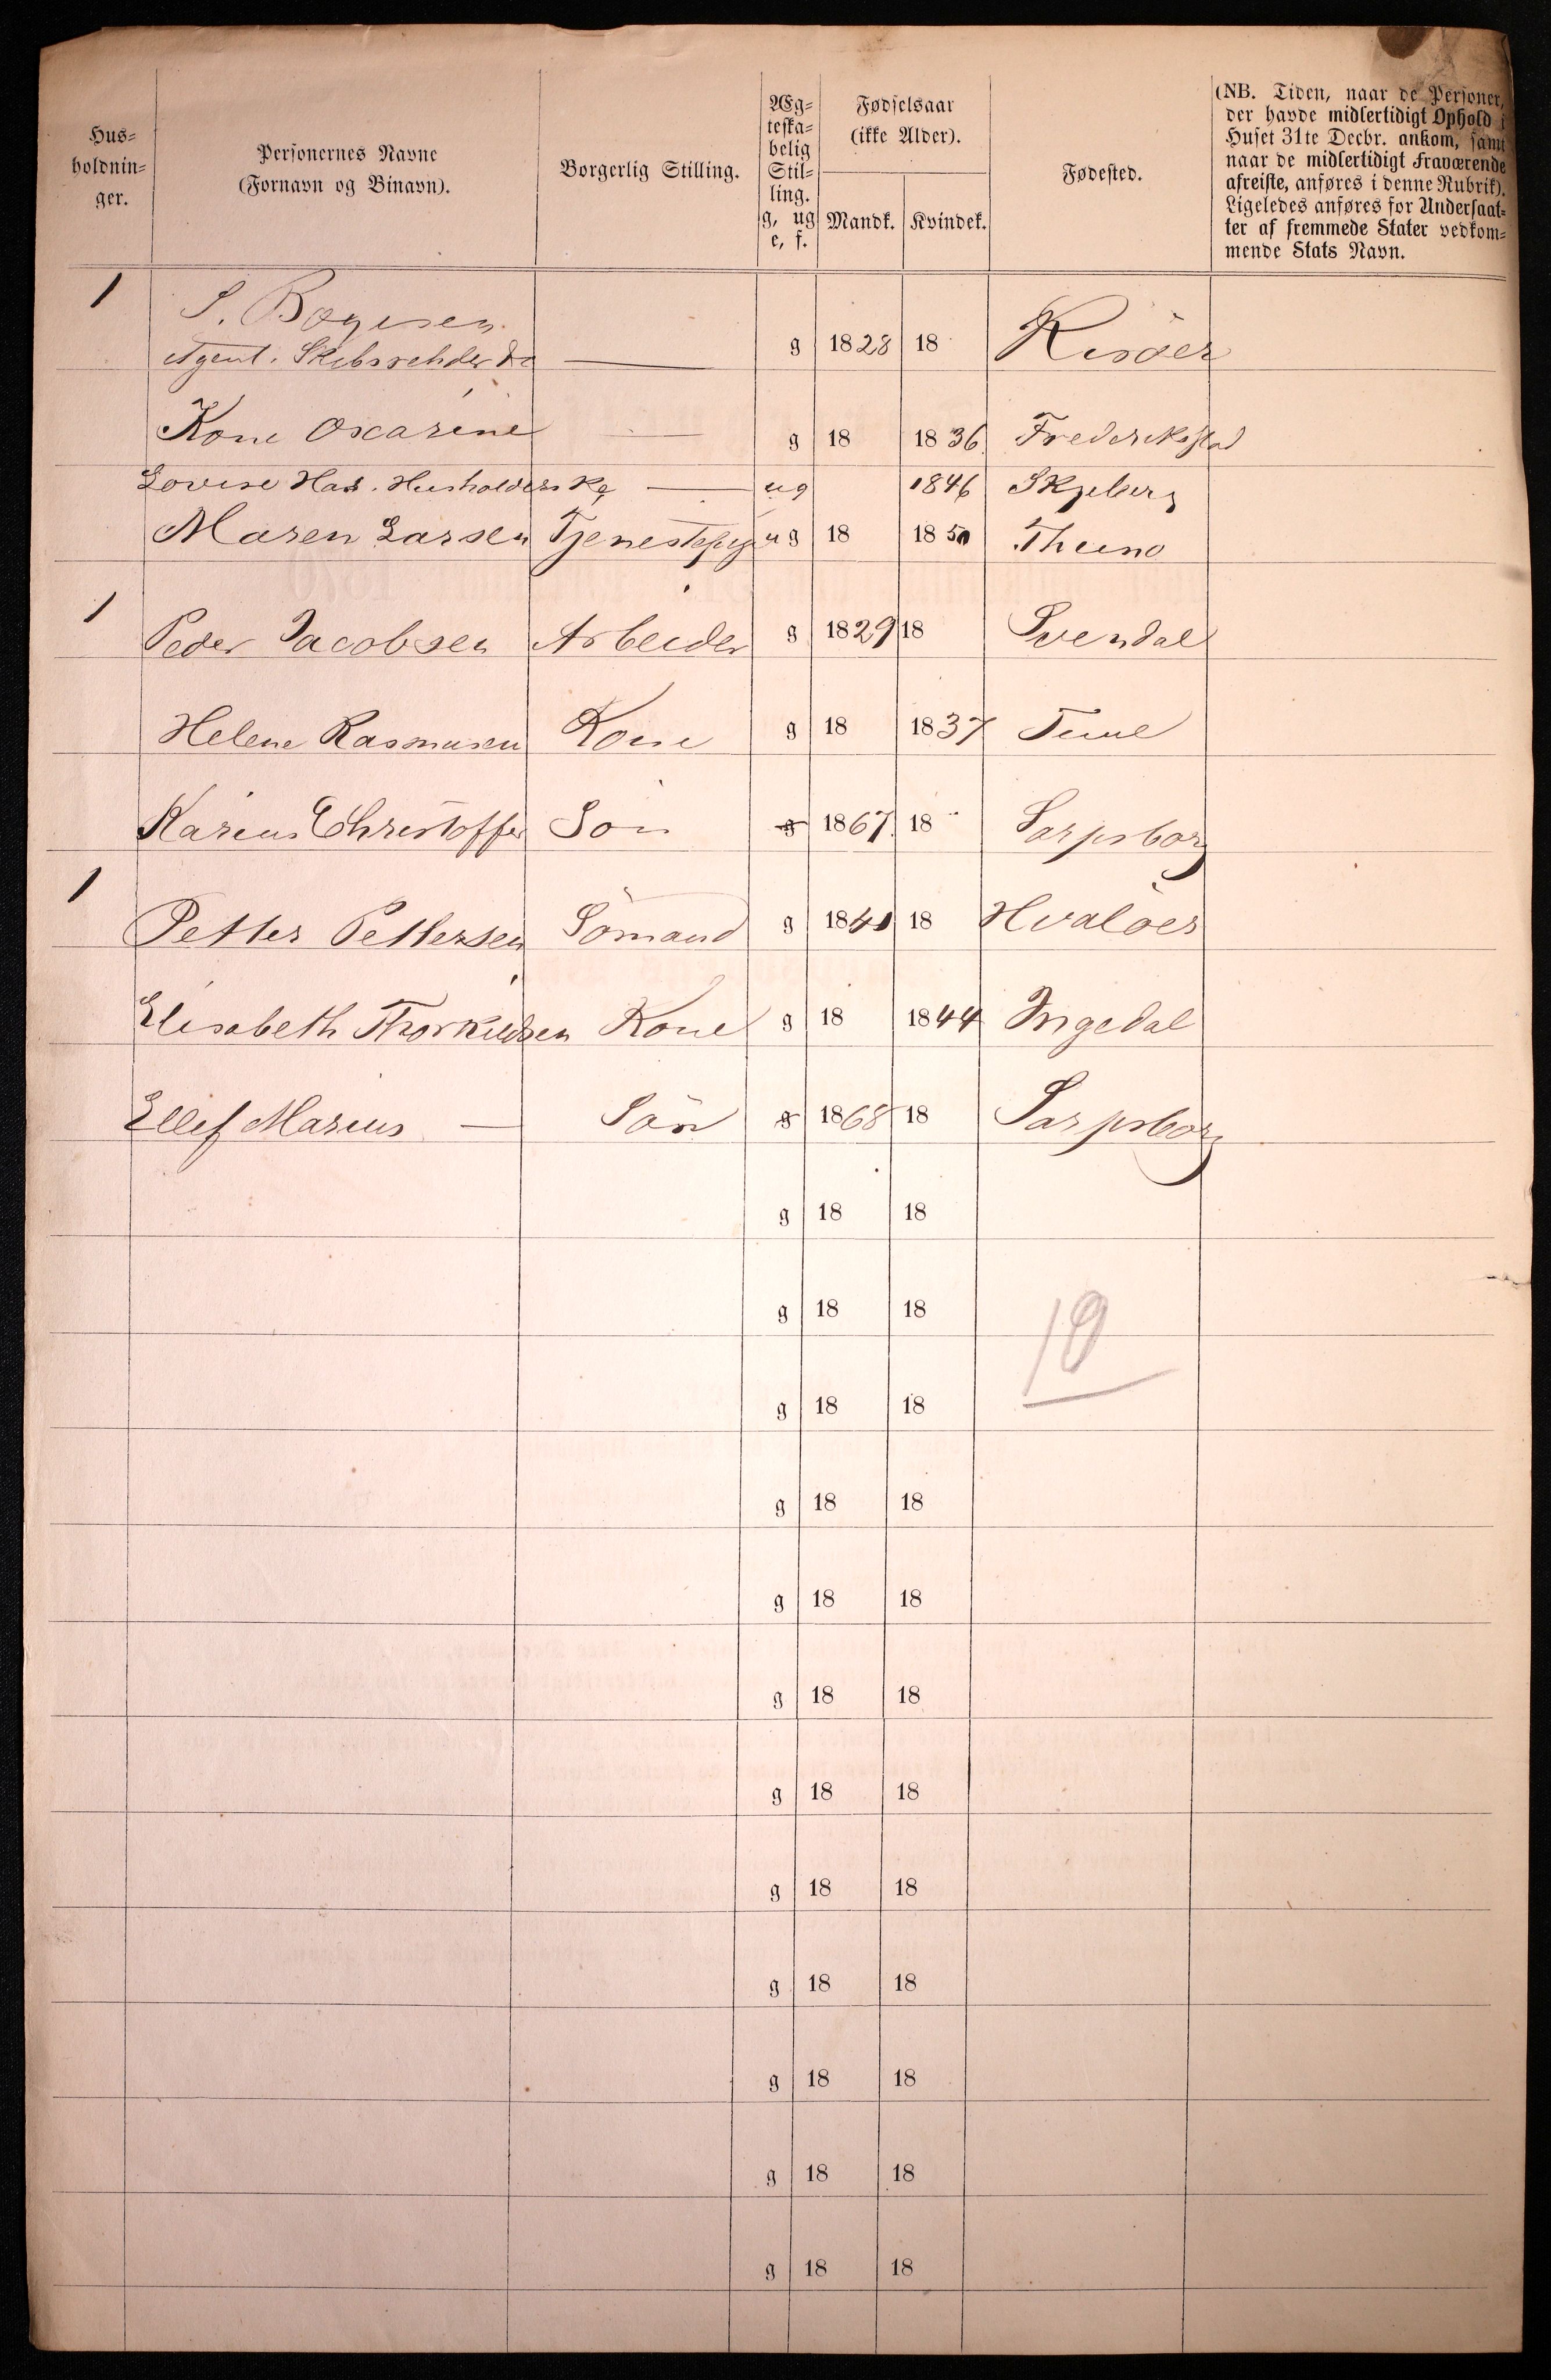 Hus-
holdnin-
ger.
Personernes Navne
(Fornavn og Binavn).
Borgerlig Stilling.
Æg-
teska-
belig
Stil-
ling.
g, ug
e, f.
Fødselsaar
(ikke Alder).
Mandk. Kvindek.
Fødested.
(NB. Tiden, naar de Personer,
der havde midlertidigt Ophold i
Huset 31te Decbr. ankom, samt
naar de midlertidigt Fraværende
afreiste, anføres i denne Rubrik).
Ligeledes anføres for Undersaat-
ter af fremmede Stater vedkom-
mende Stats Navn.
1 S. Bøgesen
Agent. Skibsrehder — g 1828 18 Risöer
Kone Oscarine — g 18 1836 Frederikstad
Lovise Husholderske — ug 1846 Skjeberg
Maren Larsen Tjenestepige ug 18 1850 Thuno
1 Peder Jacobsen Arbeider g 1829 18 Svendal
Helene Rasmusen Kone g 18 1837 Tune
Karius Christoffer Sön g 1867 18 Sarpsborg
1 Petter Pettersen Sömand g 1840 18 Hvalöer
Elisabeth Thorkildsen Kone g 18 1844 Ingedal
Ellef Marius — Sön g 1868 18 Sarpsborg
g 18 18
g 18 18
10
g 18 18
g 18 18
g 18 18
g 18 18
g 18 18
g 18 18
g 18 18
g 18 18
g 18 18
g 18 18